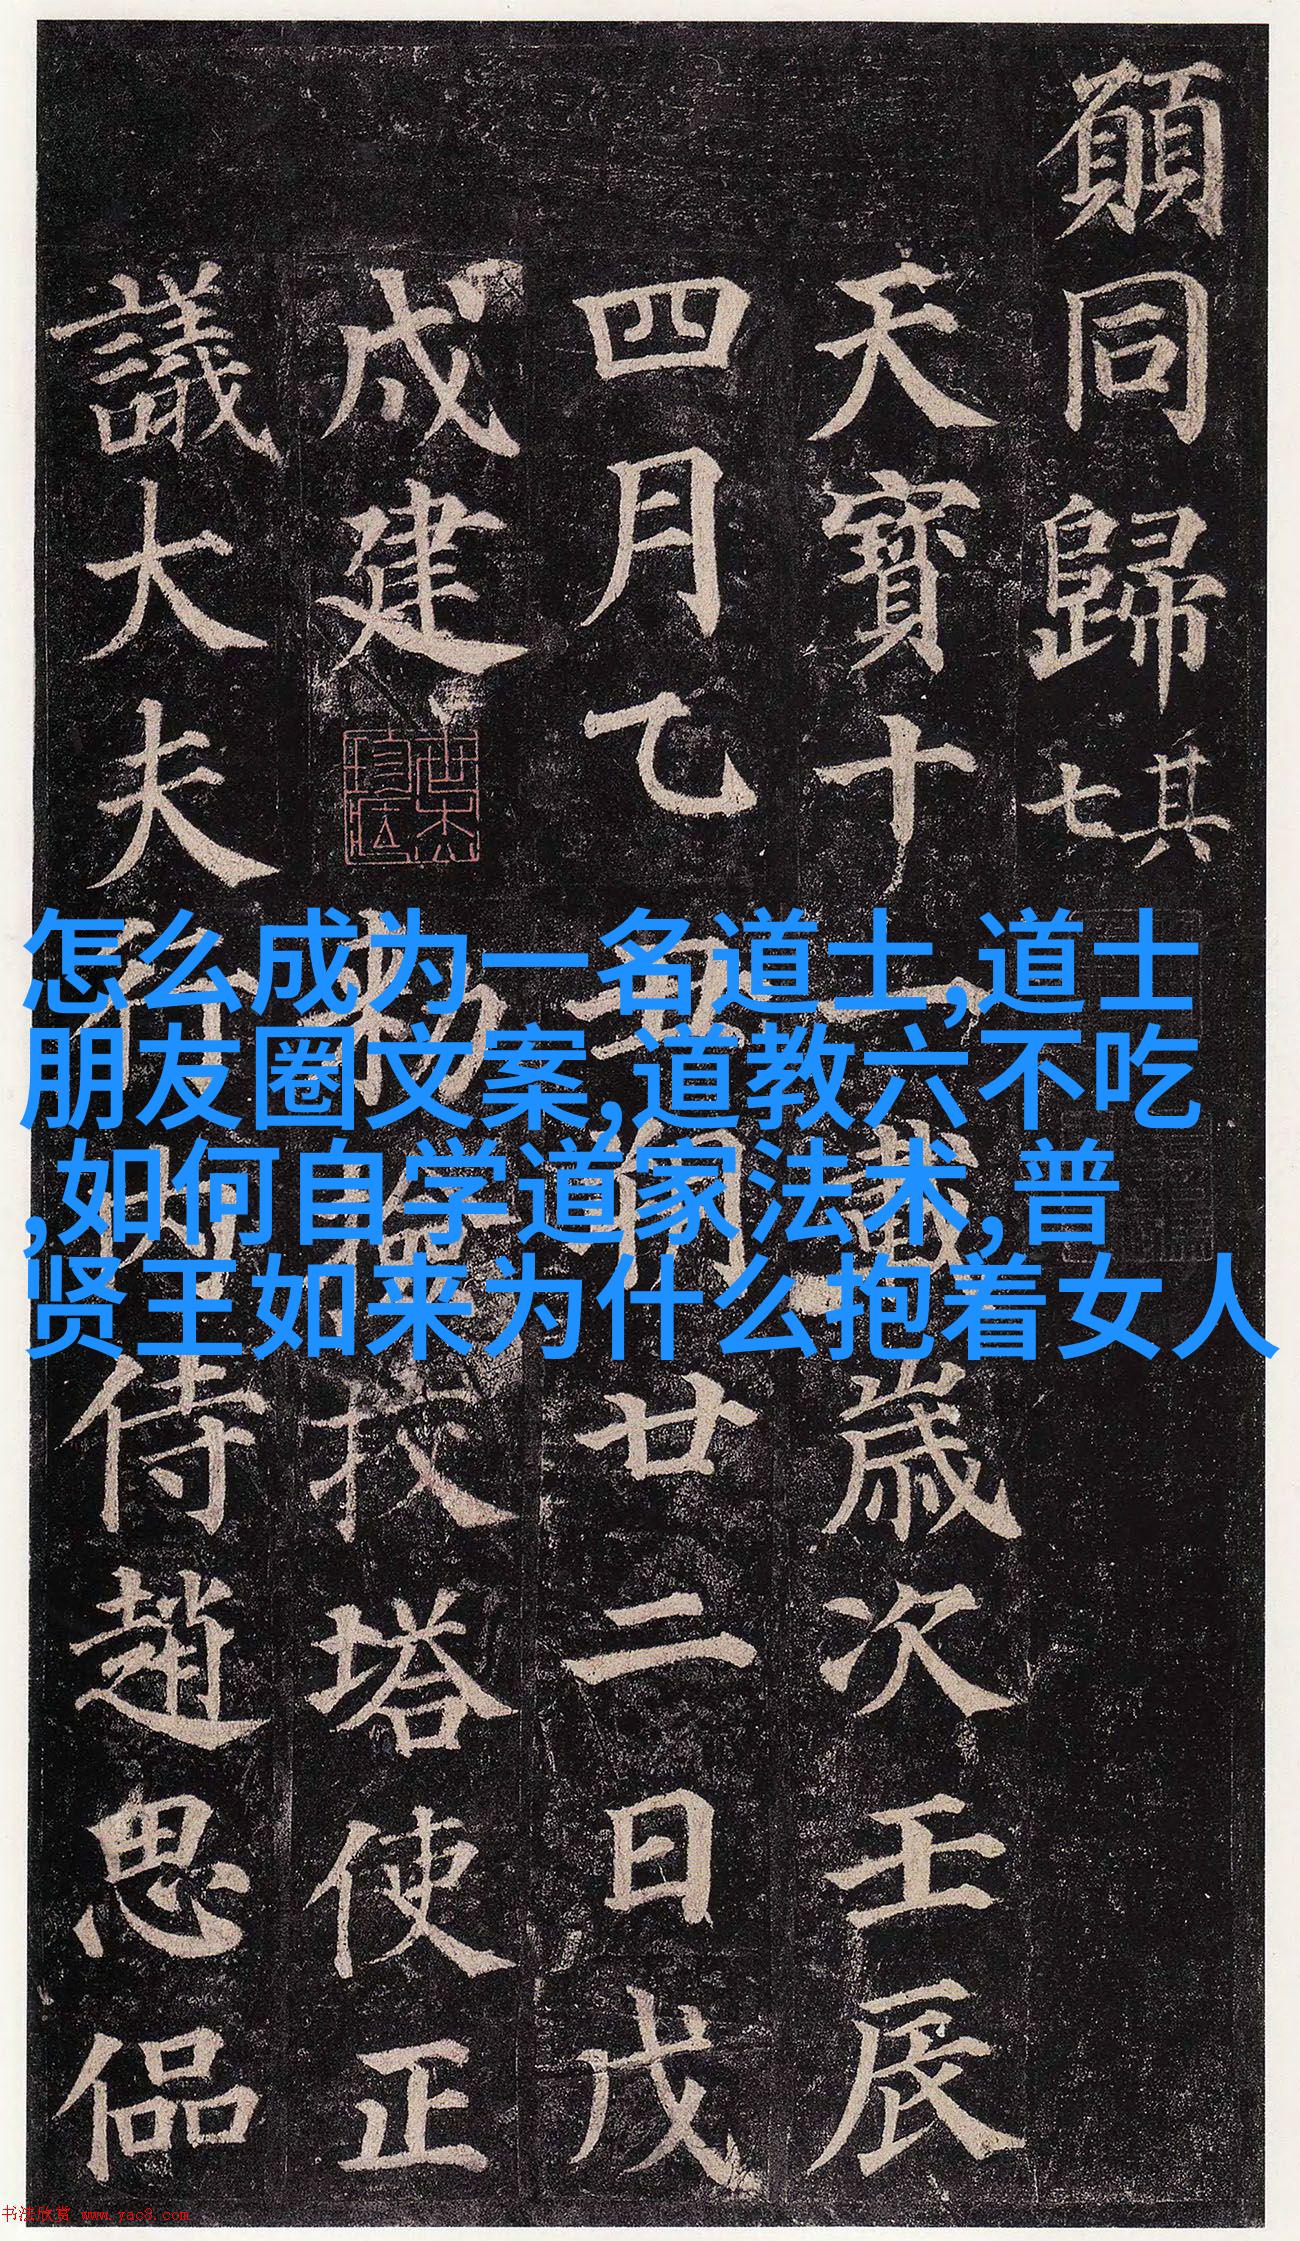 願同歸其七
天寶十一載歲次壬辰
四月乙丑朔廿二日戊
戌建勑檢挍塔使正
議大夫行內侍趙思偘
怎么成为一名道士,道士
朋友圈文案,道教六不吃
,如何自学道家法术,普
贤王如来为什么抱着女人
书法欣赏 www.yac8.com